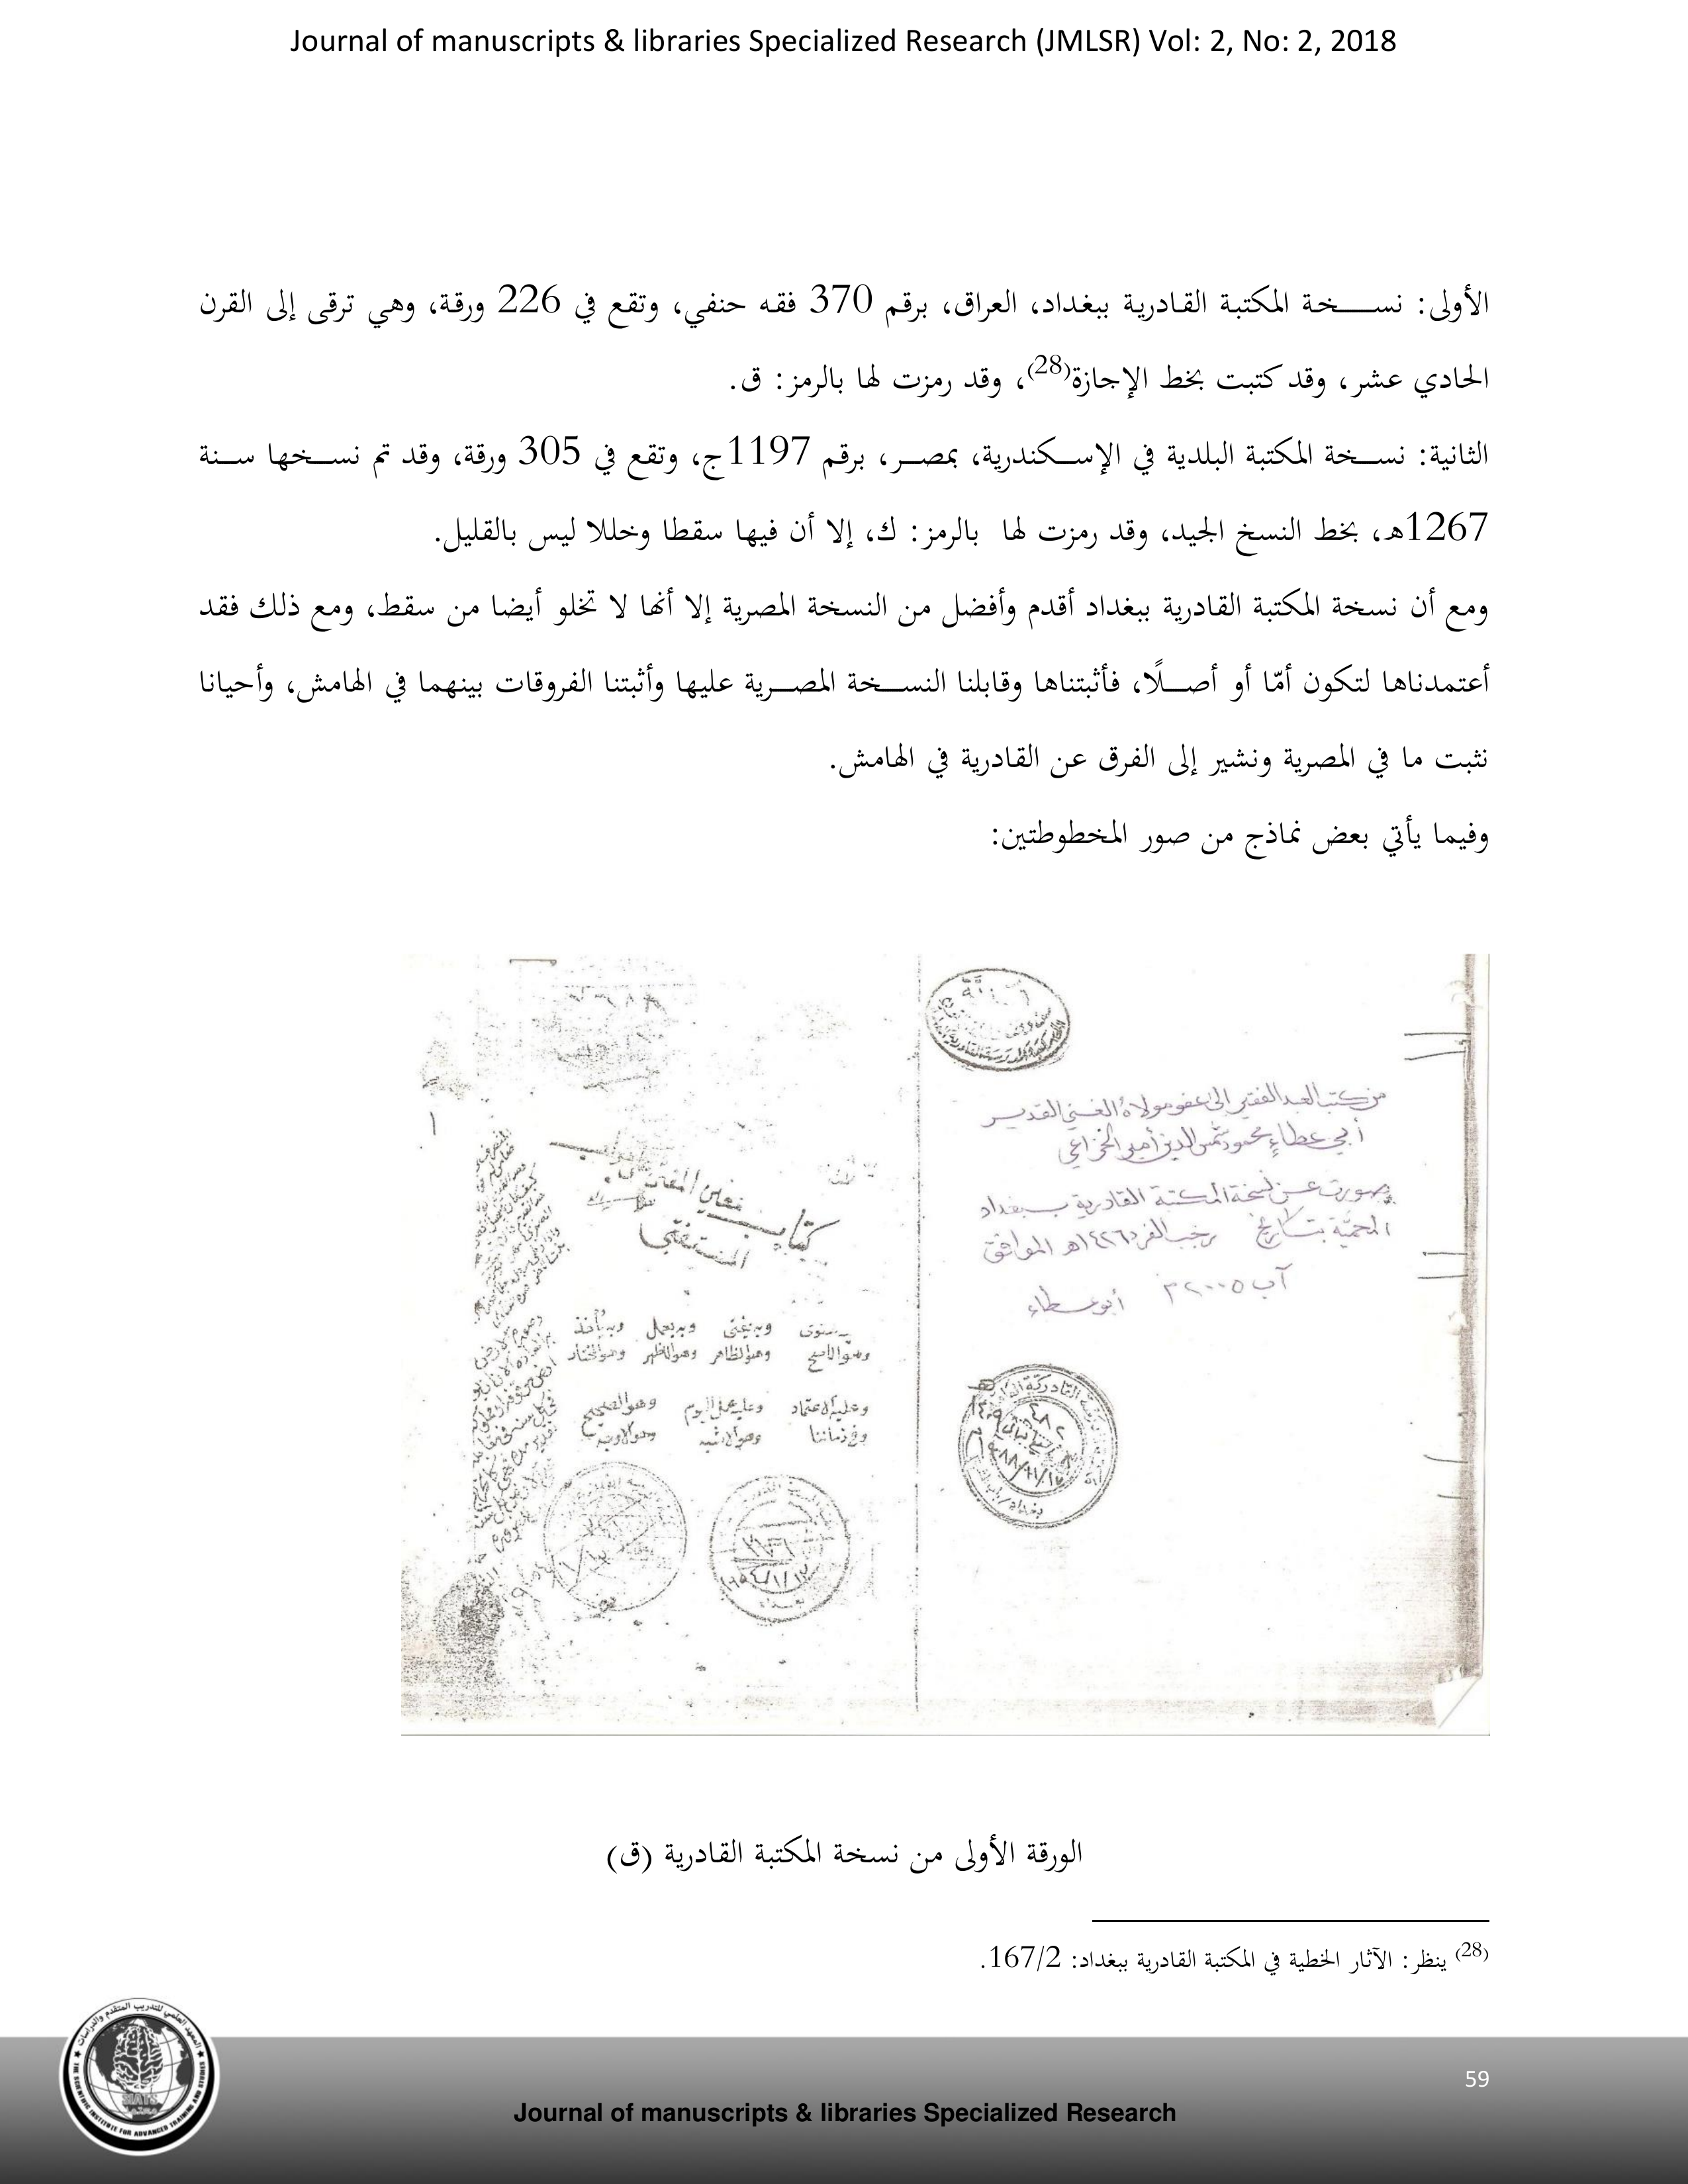 Journal of manuscripts & libraries Specialized Research (JMLSR) Vol: 2, No: 2, 2018
الأولى: نســــخة المكتبة القادرية ببغداد، العراق، برقم 370 فقه حنفي، وتقع في 226 ورقة، وهي ترقى إلى القرن
الحادي عشر، وقد كتبت بخط الإجازة(28)، وقد رمزت لها بالرمز: ق.
الثانية: نســخة المكتبة البلدية في الإســكندرية، بمصــر، برقم 1197ج، وتقع في 305 ورقة، وقد تم نســخها ســنة
1267هـ، بخط النسخ الجيد، وقد رمزت لها بالرمز: ك، إلا أن فيها سقطا وخللا ليس بالقليل.
ومع أن نسخة المكتبة القادرية ببغداد أقدم وأفضل من النسخة المصرية إلا أنها لا تخلو أيضا من سقط، ومع ذلك فقد
أعتمدناها لتكون أمّا أو أصــلًا، فأثبتناها وقابلنا النســخة المصــرية عليها وأثبتنا الفروقات بينهما في الهامش، وأحيانا
نثبت ما في المصرية ونشير إلى الفرق عن القادرية في الهامش.
وفيما يأتي بعض نماذج من صور المخطوطتين:
من كتب العبد الفقير إلى عفو مولاه الغني القدير
أبي عطاء محمود شمس الدين أمير الخزاعي
صورت عن نسخة المكتبة القادرية ببغداد
المحمية بتاريخ رجب الفرد ١٤٢٦هـ الموافق
آب ٢٠٠٥م أبو عطاء
كتاب معين المفتي
المستفتي
وبه يفتى وبه يعمل وبه يأخذ
وهو الاصح وهو الظاهر وهو الظهر وهو المختار
وعليه الاعتماد وعليه عمل اليوم وهو الصحيح
وفي زماننا وهو الاشبه وهو الاوجه
الورقة الأولى من نسخة المكتبة القادرية (ق)
(28) ينظر: الآثار الخطية في المكتبة القادرية ببغداد: 167/2.
59
Journal of manuscripts & libraries Specialized Research